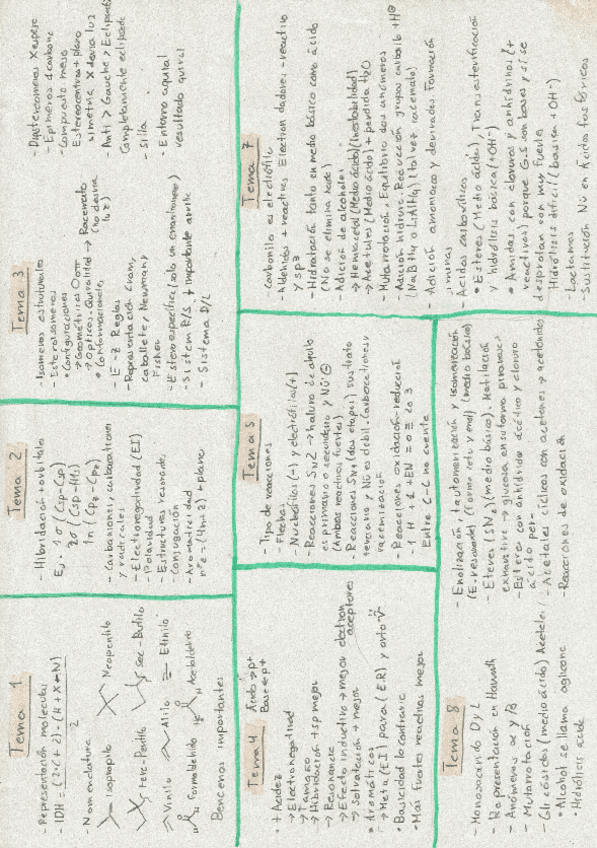 Tema 1
- Representación molecular
- IDH = (2·C+2)-(H+X-N)
2
- Nomenclatura
Isopropilo
Neopentilo
Terc-Pentilo
Sec-Butilo
Vinilo
Alilo
Etinilo
Formaldehido
Acetaldehido
Bencenos importantes
Tema 2
- Hibridación + orbitales
- Carbaniones, carbocationes
y radicales
- Electronegatividad (EI)
- Polaridad
- Estructuras resonantes,
conjugación
- Aromaticidad
nºe = (4n+2) + plano
Tema 3
- Isomeros estructurales
- Estereoisomeros
• Configuraciones
→ Geométricos
→ Opticos-Quiralidad → Racemato
(no desvia
luz)
• Conformacionales
- E-Z Reglas
- Representación Cram,
caballete, Newman,
Fisher
- Estereoespecífica (solo un enantiomero)
- Sistema R/S + importante arriba
- Sistema D/L
- Diastereomeros X espejo
- Epimeros
- Compuesto meso
Estereocentros + plano
simetria, X desvia luz
- Anti > Gauche > Eclipsada
Completamente eclipsada
- Silla
• Entorno aquiral
resultado quiral
Tema 4
Acido → p+
Base ← p+
• + Acidez
→ Electronegatividad
→ Tamaño
→ Hibridación + sp mejor
→ Resonancia
→ Efecto inductivo → mejor electron
aceptores
→ Solvatación + mejor
• Aromáticos
→ Meta (E.I) para (E.R) y orto
• Basicidad lo contrario
• Más fuertes reactivas mejor
Tema 5
- Tipo de reacciones
- Flechas
Nucleofilos (-) y electrófilos (+)
- Reacciones SN2 → haluro de alquilo
es primario o secundario y Nü
(Ambas reactivos fuertes)
- Reacciones SN1 (dos etapas) sustrato
terciario y Nü es débil. Carbocationes y
racemización
- Reacciones oxidación-reducción
Entre C-C no cuenta
Tema 7
- Carbonilo es electrófilo
- Aldehidos + reactivos. Electron dadores - reactivo
y sp3
- Hidratación tanto en medio básico como ácido
(No se elimina nada)
- Adición de alcoholes
→ Hemiacetal (Medio ácido) (inestabilidad)
→ Acetales (Medio ácido) + perdida H2O
- Mutarrotación, Equilibrio dos anómeros
- Adición hidruro. Reducción grupos carbonilo + H
(NaBH4 o LiAlH4) (tal vez racemato)
- Adición amoniaco y derivados. Formación
iminas
- Acidos carboxílicos
• Esteres (Medio ácido), Transesterificación
y hidrólisis básica (+OH-)
• Amidas con cloruros y anhidrinos (+
reactivos) porque G.S son bases y si se
desprotonan son muy fuertes
Hidrólisis dificil (basica +OH-)
- Lactamas
Sustitución Nü en Acidos fosfóricos
Tema 8
- Monosacarido D y L
- Representación en Haworth
- Anómeros α y β
- Mutarrotación
- Glicósidos (medio ácido) Acetales
• Alcohol se llama aglicone
• Hidrólisis ácida
- Enolización, tautomerización y isomerización
(E.resonante) (Forma ceto y enol) (medio básico)
- Eteres (SN2) (medio básico), Metilación
exhaustiva → glucosa en su forma piranosa
- Esteres con anhidrido acético y cloruro
ácido
- Acetales cíclicos con acetona → acetonidos
- Reacciones de oxidación